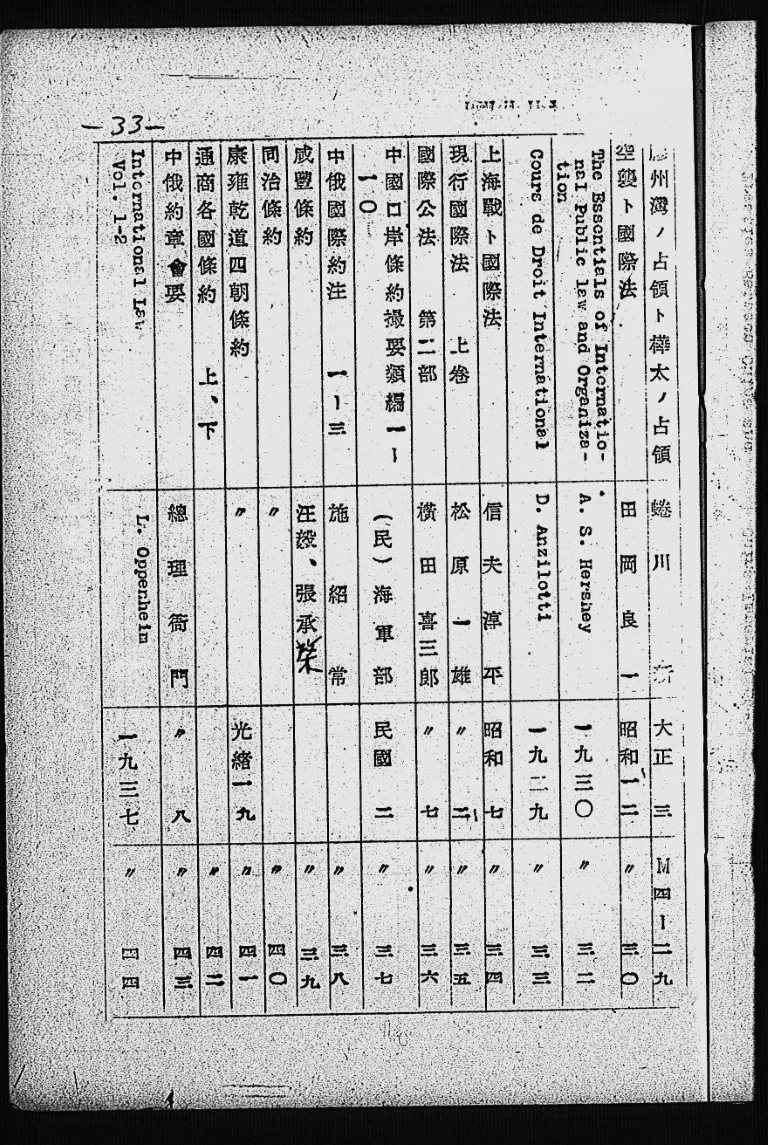 —33—
膠州灣ノ占領ト樺太ノ占領 蜷川 新 大正 三 M四ー二九
空襲ト國際法 田岡良一 昭和一二 〃 三〇
The Essentials of Internatio-
nal Public law and Organiza-
tion A. S. Hershey 一九三〇 〃 三二
Cours de Droit International D. Anzilotti 一九二九 〃 三三
上海戰ト國際法 信夫淳平 昭和 七 〃 三四
現行國際法 上卷 松原一雄 〃 二 〃 三五
國際公法 第二部 横田喜三郎 〃 七 〃 三六
中國口岸條約撮要類編 一ー
一〇 (民)海軍部 民國 二 〃 三七
中俄國際約注 一ー三 施紹常 〃 三八
咸豐條約 汪毅、張承棨 〃 三九
同治條約 〃 〃 四〇
康雍乾道四朝條約 〃 光緒一九 〃 四一
通商各國條約 上、下 〃 四二
中俄約章會要 總理衙門 〃 八 〃 四三
International Law
Vol. 1-2 L. Oppenheim 一九三七 〃 四四